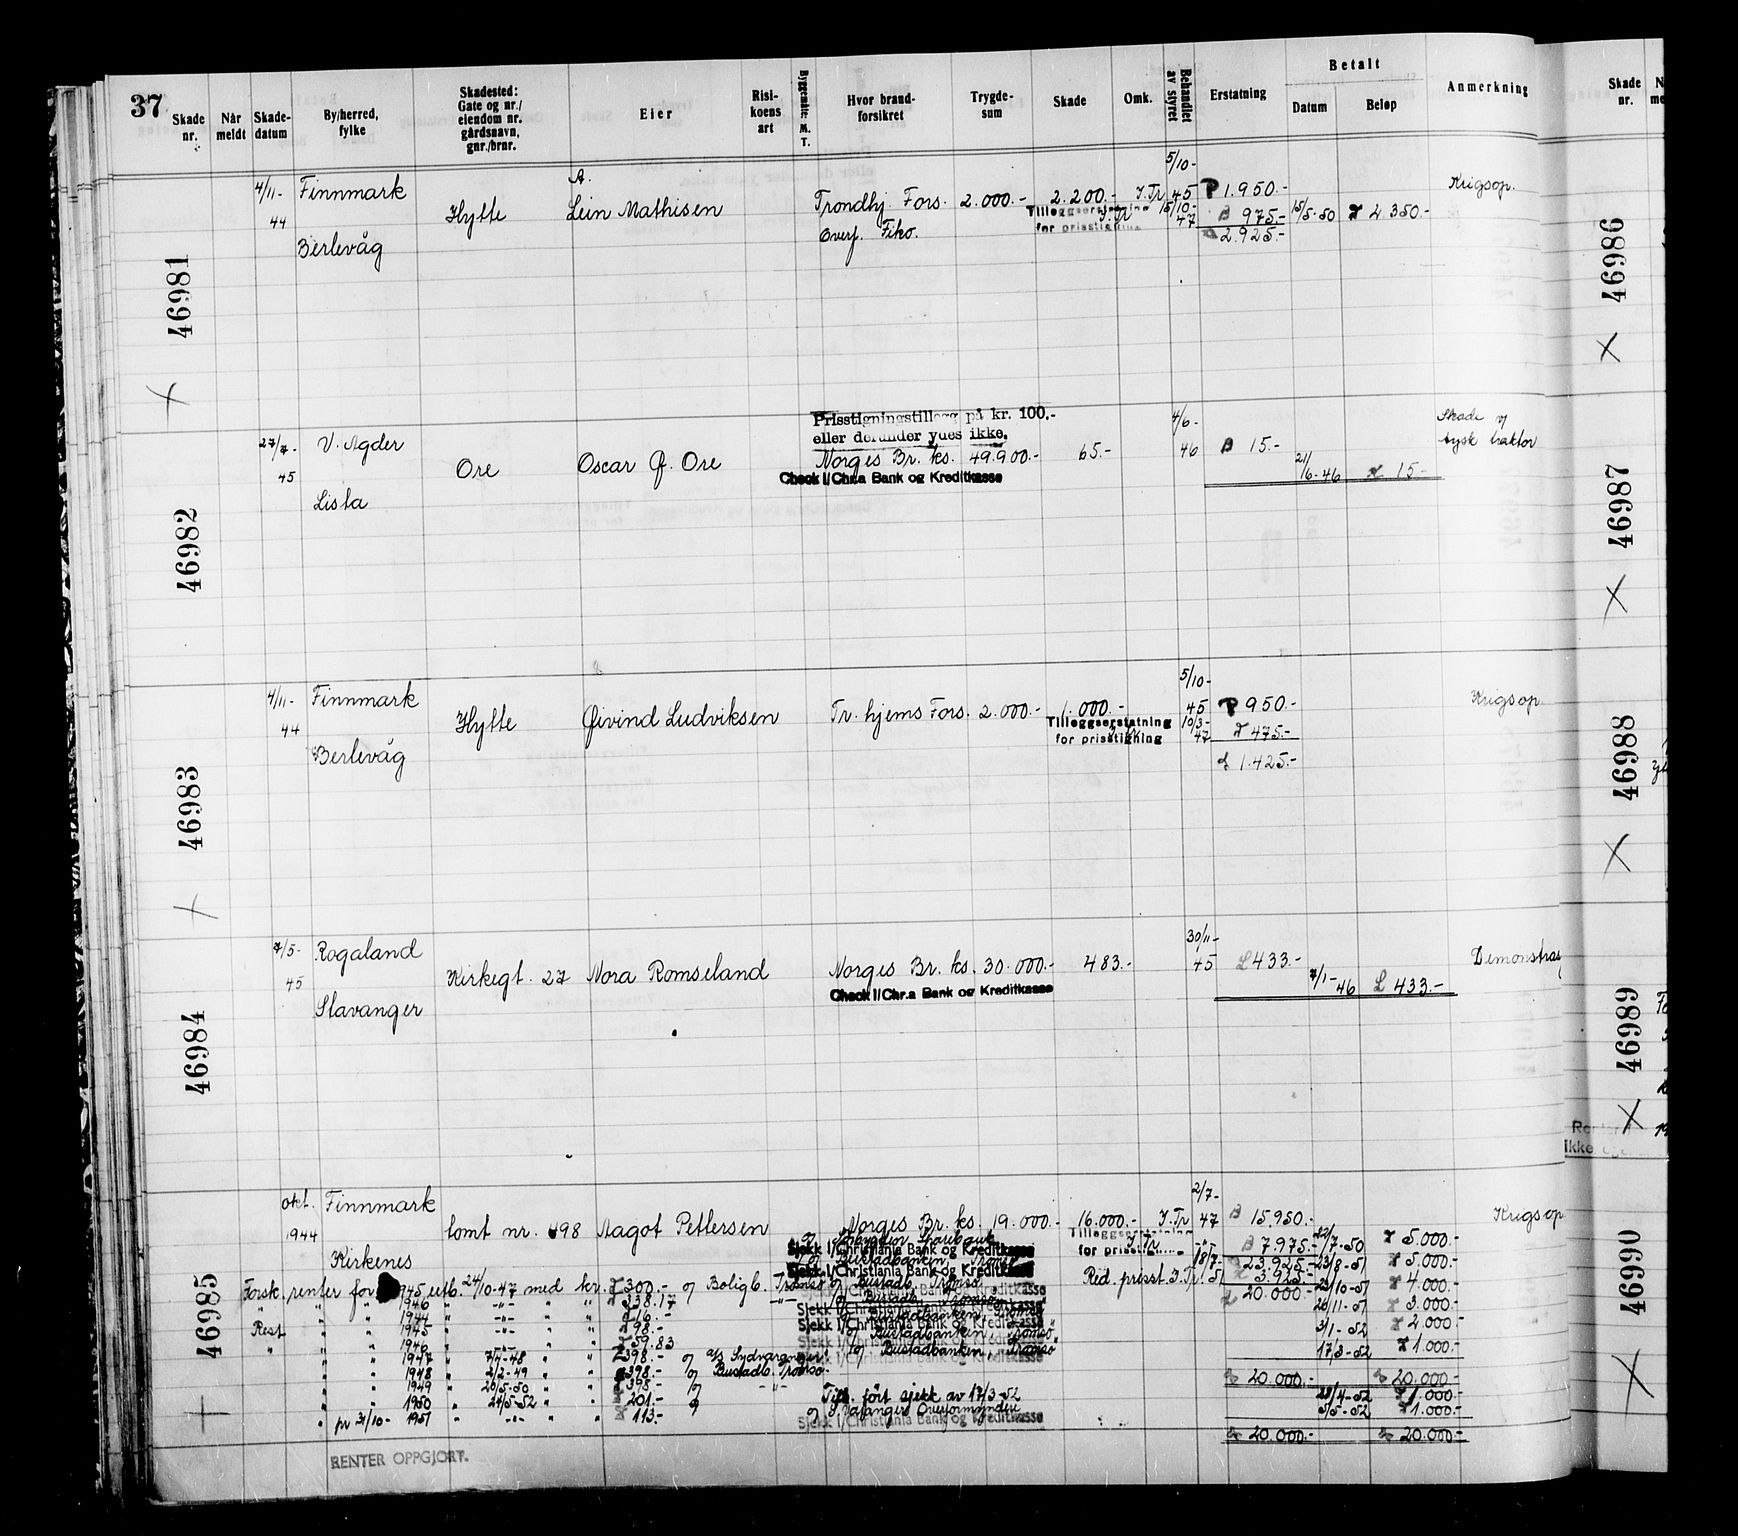 37
Skade nr.
Når meldt
Skade-datum
By/herred, fylke
Skadested: Gate og nr./ eiendom nr. gårdsnavn, gnr./brnr.
Eier
Risi-koens art
Byggemåte: M. T.
Hvor brand-forsikret
Trygde-sum
Skade
Omk.
Behandlet av styret
Erstatning
Betalt
Datum
Beløp
Anmerkning
Skade nr.
46981
4/11- 44
Finnmark
Berlevåg
Hytte
A.
Lein Mathisen
Trondhj. Fors. 2.000.- 2.200.- J.Tr.
Overf. Fiko.
Tilleggserstatning
for prisstigning
5/10- 45
15/10- 47
1.950.-
975.- 15/5-50 2.350.-
2.925.-
Krigsop.
46986
46982
27/7- 45
V. Agder
Lista
Ore
Oscar J. Ore
Prisstigningstillegg på kr. 100.-
eller derunder ydes ikke.
Norges Br. ks. 49.900.- 65.-
Check I/Chr.a Bank og Kreditkasse
4/6- 46
15.-
21/6-46 15.-
Skade v/
tysk traktor
46987
46983
4/11- 44
Finnmark
Berlevåg
Hytte
Øivind Ludviksen
Tr. hjems Fors. 2.000.- 1.000.-
Tilleggserstatning
for prisstigning
5/10- 45
10/3- 47
950.-
475.-
1.425.-
Krigsop.
46988
46984
7/5- 45
Rogaland
Stavanger
Kirkegt. 27
Nora Romseland
Norges Br. ks. 30.000.- 483.-
Check I/Chr.a Bank og Kreditkasse
30/11- 45
433.-
7/1-46 433.-
46989
46985
okt. 1944
Finnmark
Kirkenes
tomt nr. 498
Aagot Pettersen
Norges Br. ks. 19.000.- 16.000.- J.Tr.
Tilleggserstatning
for prisstigning
2/7- 47
15.950.-
7.975.- 22/7-50 5.000.-
Sjekk I/Christiania Bank og Kreditkasse
Sjekk I/Christiania Bank og Kreditkasse
23.925.- 23/8-51 5.000.-
Red. prisst. J.Tr. 18/7- 51 3.925.- 23/10-51 4.000.-
20.000.- 26/11-51 3.000.-
3/1-52 2.000.-
17/3-52 1.000.-
20.000.- 20.000.-
28/4-52 1.000.-
5/5-52 1.000.-
20.000.- 20.000.-
Krigsop
Forsk. renter for 1945 utb. 24/10-47 med kr. 300.- og Boligb. Tromsø
1946 " -"- " 338.17
1944 " -"- " 16.-
Rest " 1945 " -"- " 98.-
" 1946 " -"- " 59.83
1947 7/4-48 398.- og A/S Sydvaranger
1948 2/2-49 398.- og Bustadb. Tromsø
1949 20/5-50 398.-
1950 24/5-52 201.-
pr 31/10- 1951 -"- 113.-
Bustadbanken, Tromsø
Tilb. ført sjekk av 17/3-52
Overformynderi
Sjekk I/Christiania Bank og Kreditkasse
RENTER OPPGJORT.
46990